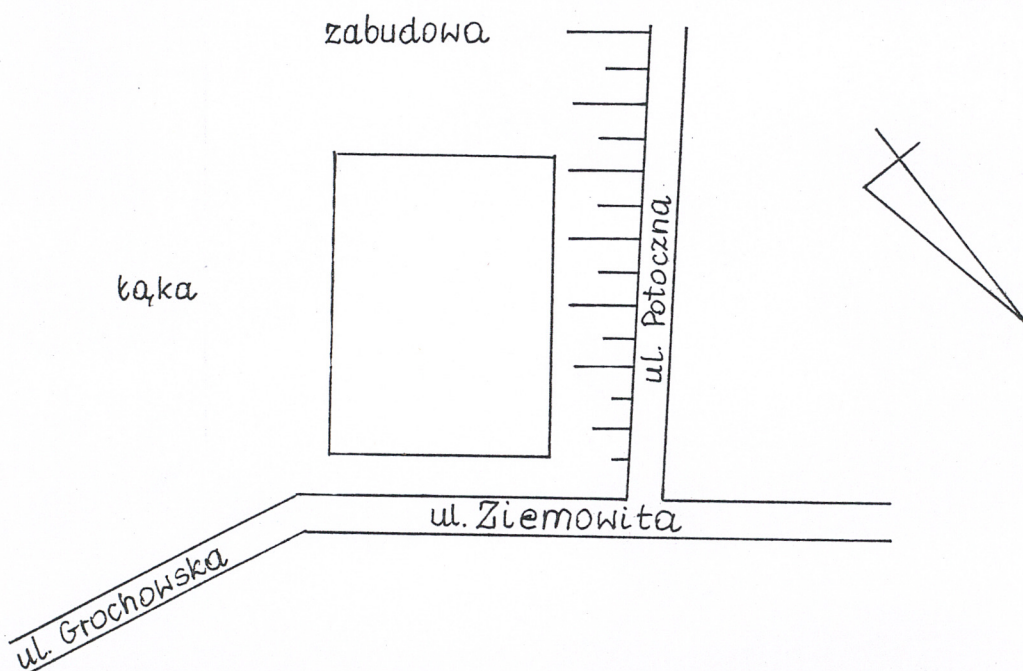 zabudowa
ul. Potoczna
łąka
ul. Ziemowita
ul. Grochowska